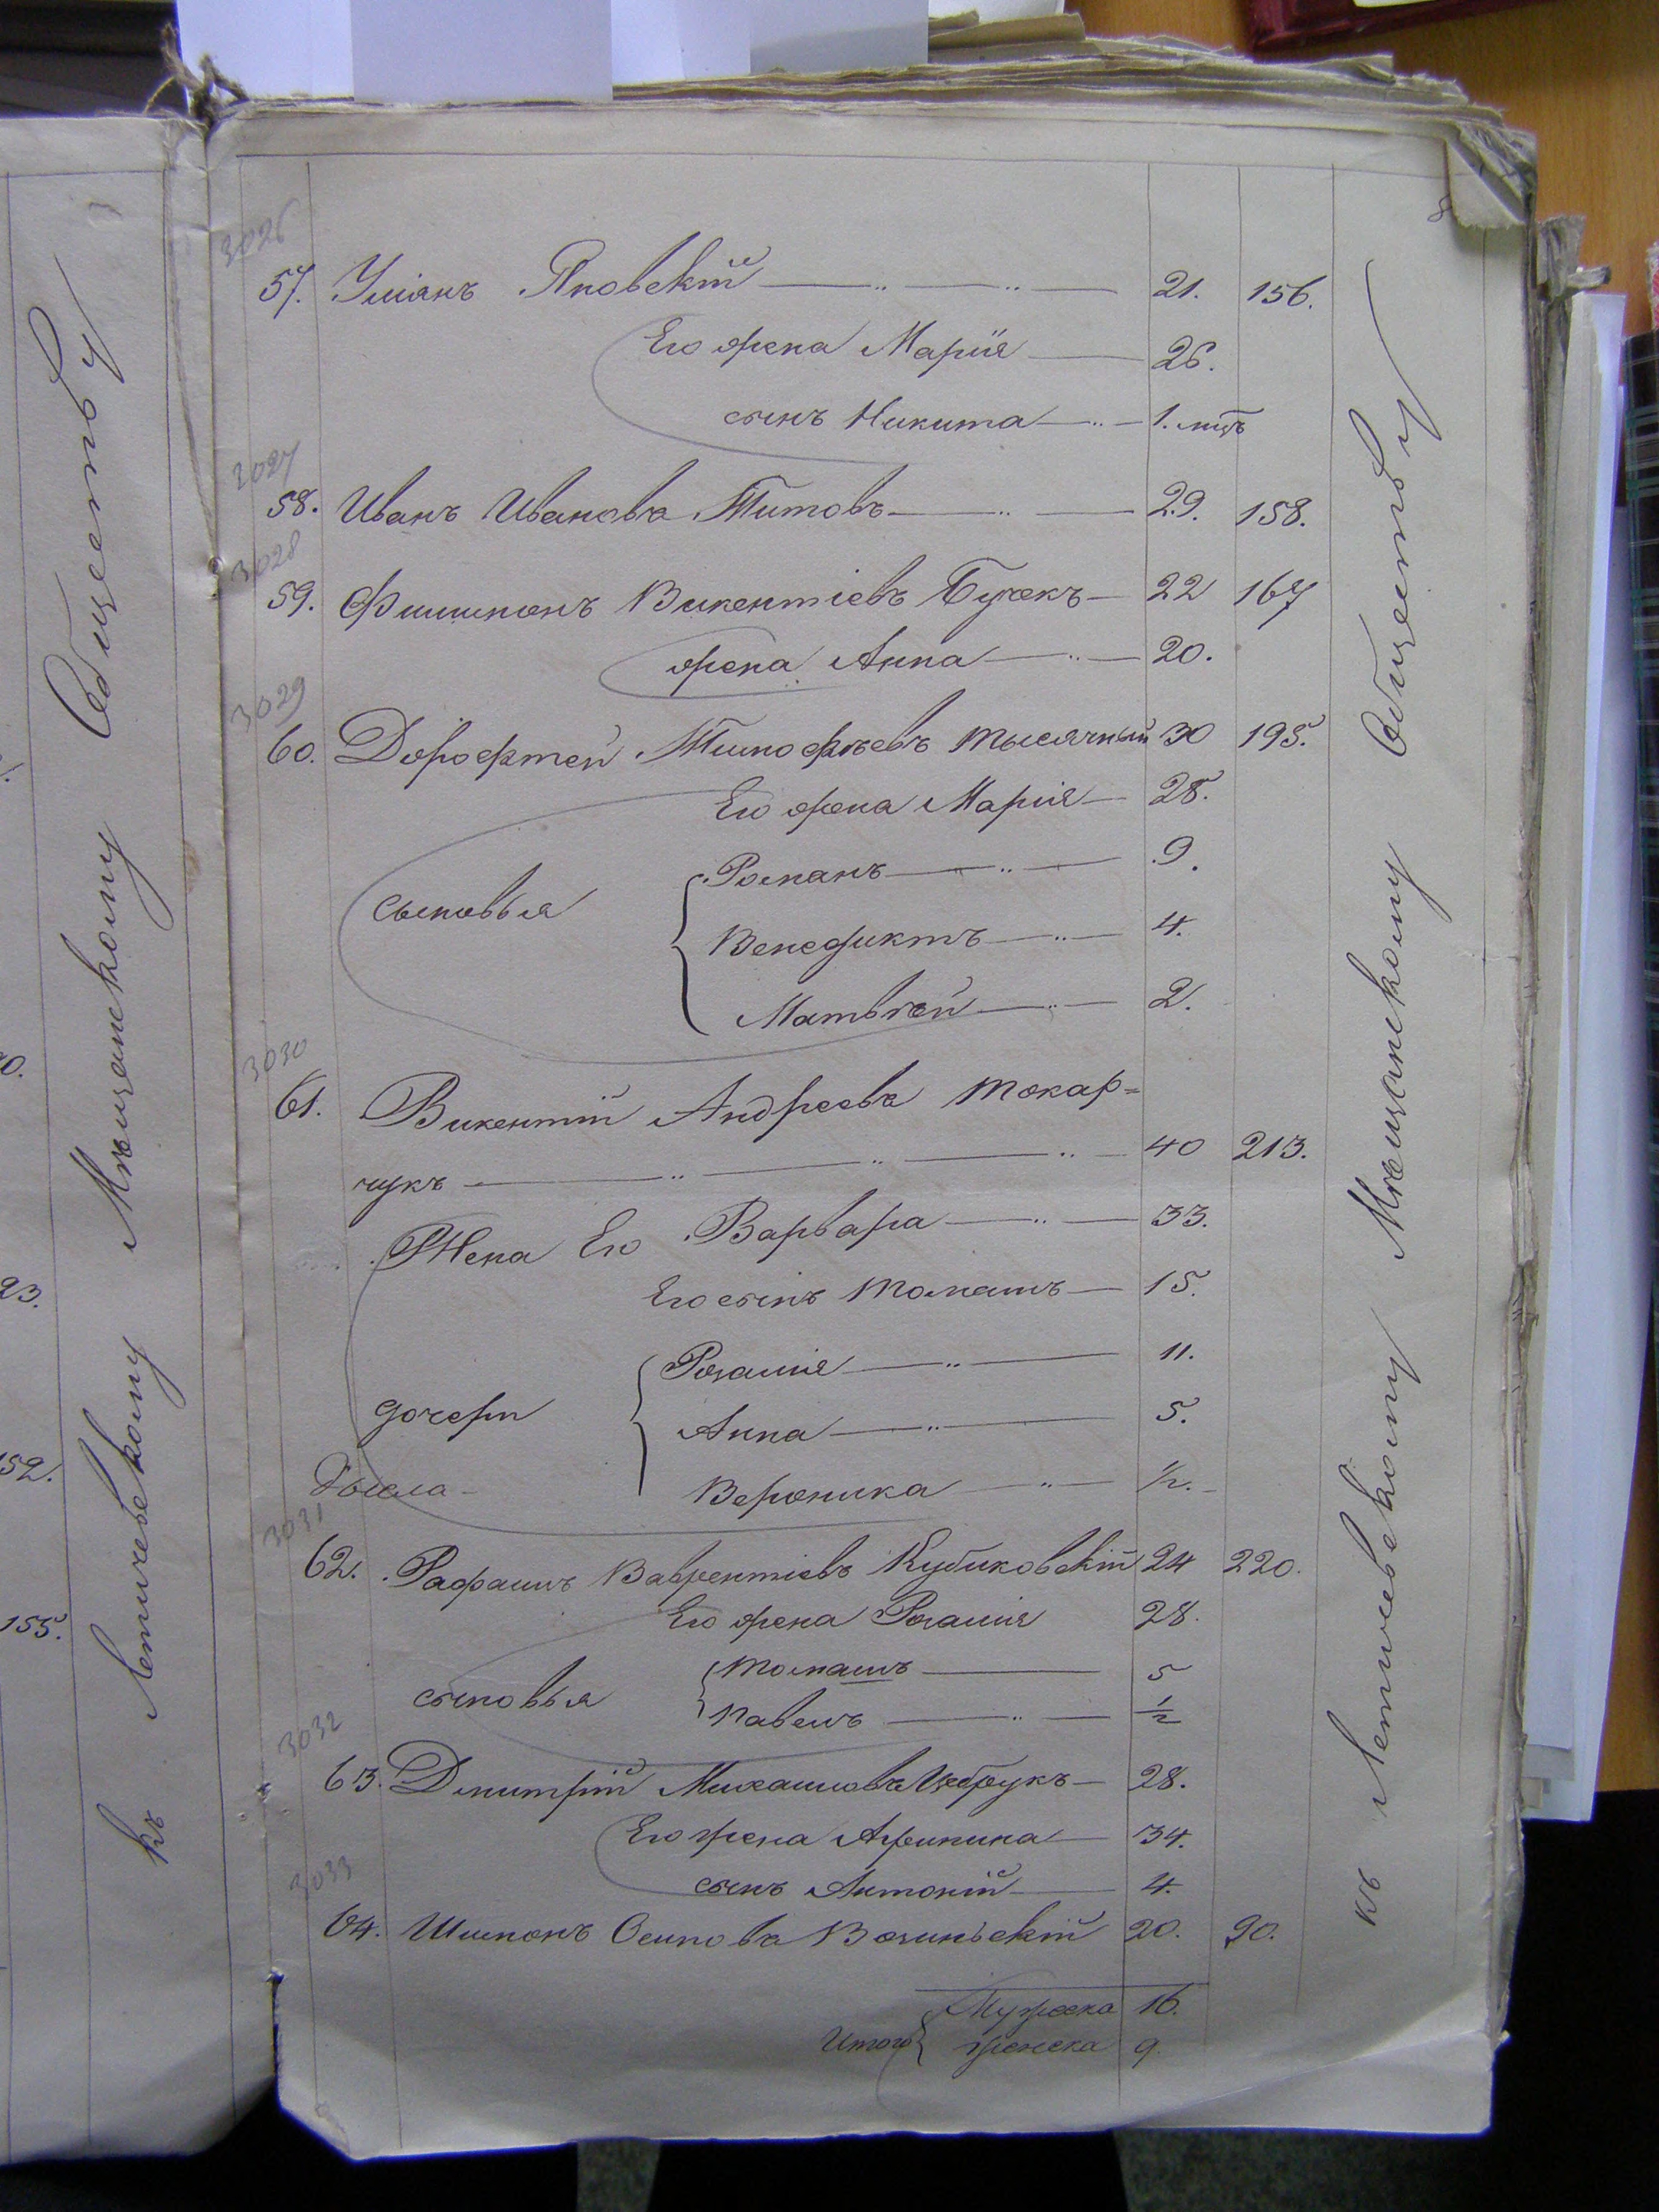 8
3026
57. Уліанъ Яновскій 21. 156.
Его жена Марія 26.
сынъ Никита 1. мцъ
3027
58. Иванъ Ивановъ Титовъ 29. 158.
3028
59. Филимонъ Викентіевъ Бучекъ 22 167
жена Анна 20.
3029
60. Дорофтей Тимофѣевъ Тысячный 30 195.
Его жена Марія 28.
Сыновья
Романъ 9.
Венедиктъ 4.
Матвѣй 2.
3030
61. Викентій Андреевъ Токар=
чукъ 40 213.
Жена Его Варвара 33.
Его сынъ Томашъ 15.
дочери
Розалія 11.
Анна 5.
Вероника 1/2.
3031
62. Рафаилъ Ваврентіевъ Кубиковскій 24 220.
Его жена Розалія 28.
сыновья
Томашъ 5
Павелъ 1/2
3032
63. Дмитрій Михайловъ 28.
Его жена Акулина 34.
сынъ Антоній 4.
3033
64. Шимонъ Осиповъ 20. 90.
Итого
Мужеска 16.
женска 9
къ Летичевскому Мѣщанскому Обществу
къ Летичевскому Мѣщанскому Обществу
23.
152.
155.